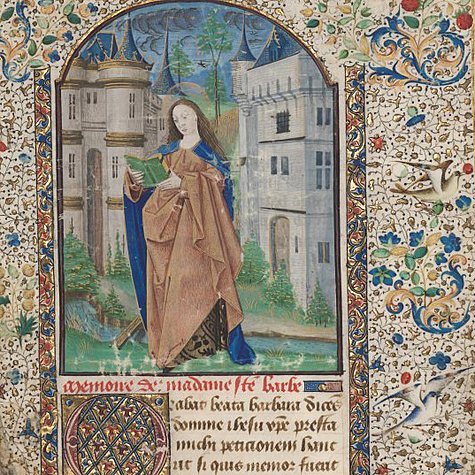 Memoire de madame ste barbe
abat beata barbara dicēs
domine ihesu xpe presta
michi peticionem hanc
ut si quis memor fuerit